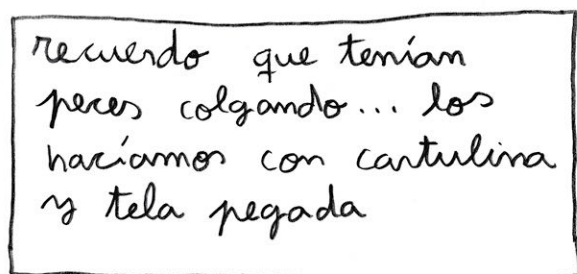 recuerdo que tenían
peces colgando... los
hacíamos con cartulina
y tela pegada